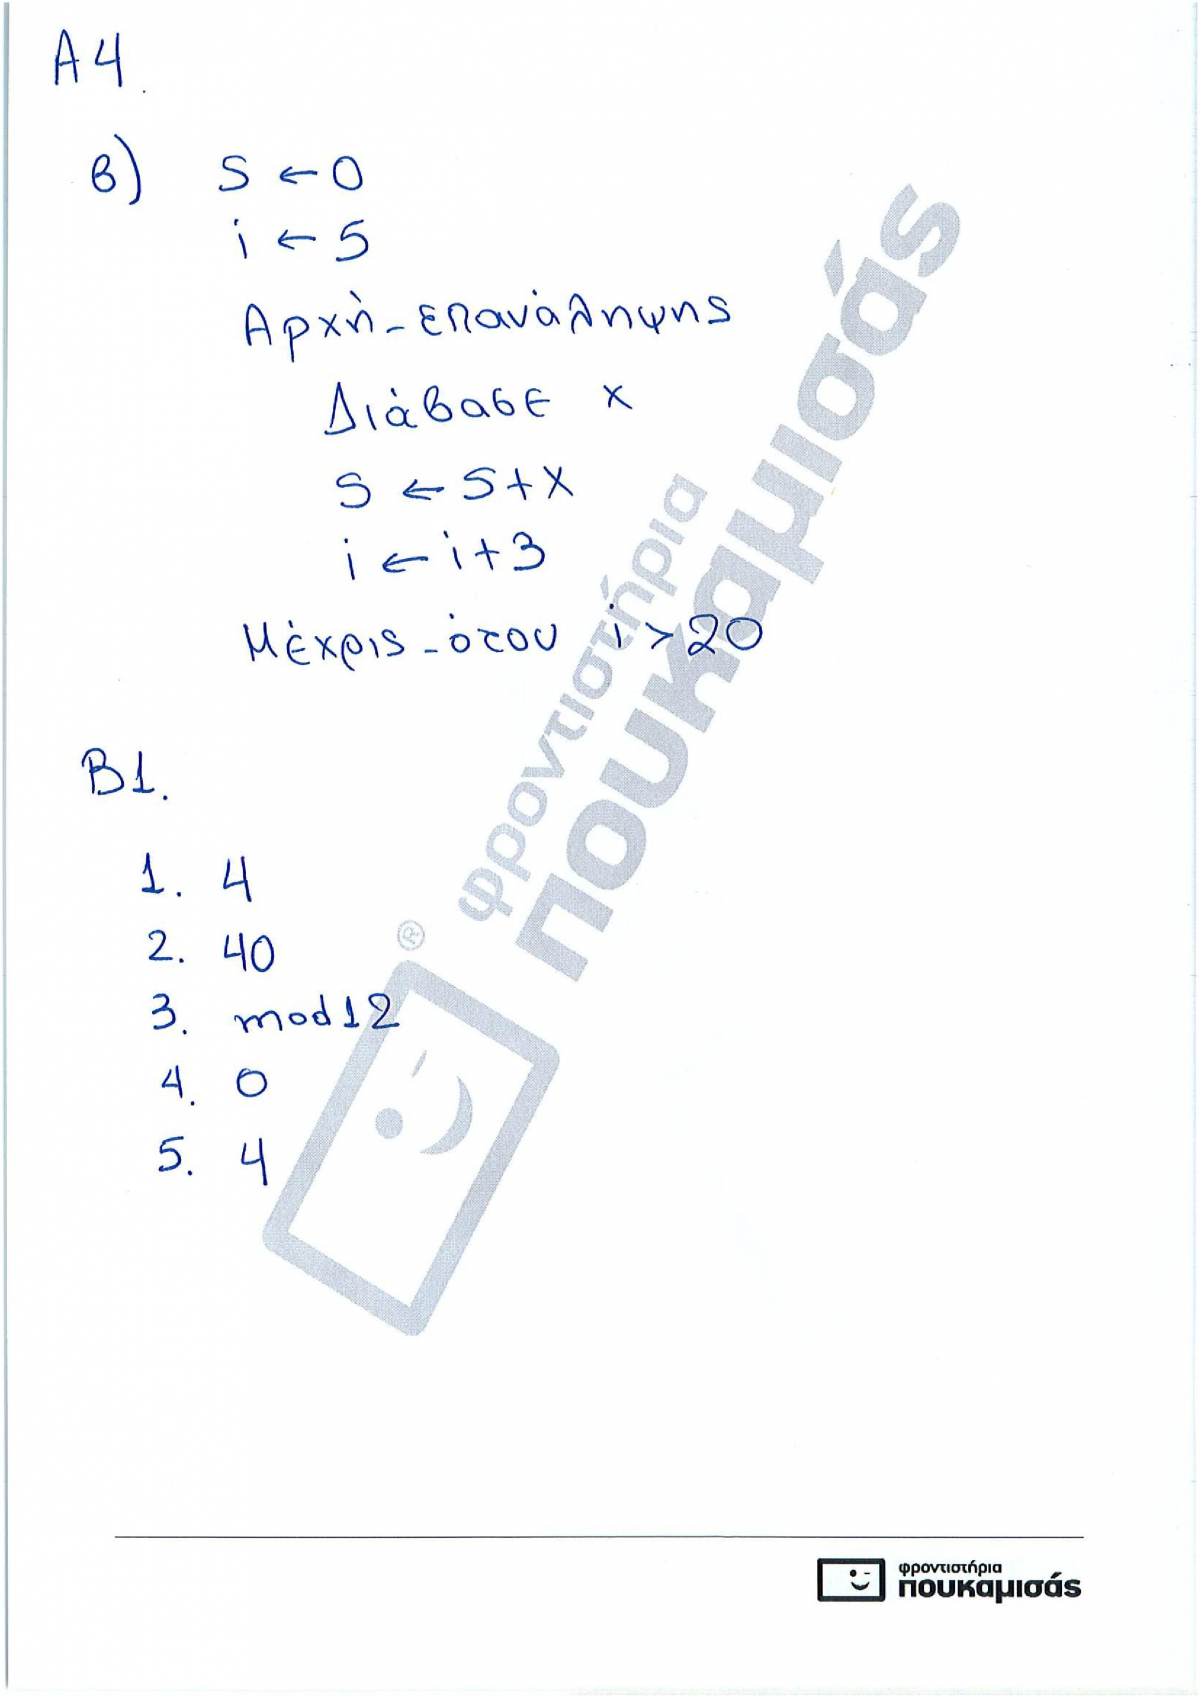 Α4.
β) S ← 0
i ← 5
Αρχή_επανάληψης
Διάβασε x
S ← S+X
i ← i+3
Μέχρις_ότου i > 20
Β1.
1. 4
2. 40
3. mod 12
4. 0
5. 4
φροντιστήρια
πουκαμισάς
®
φροντιστήρια
πουκαμισάς